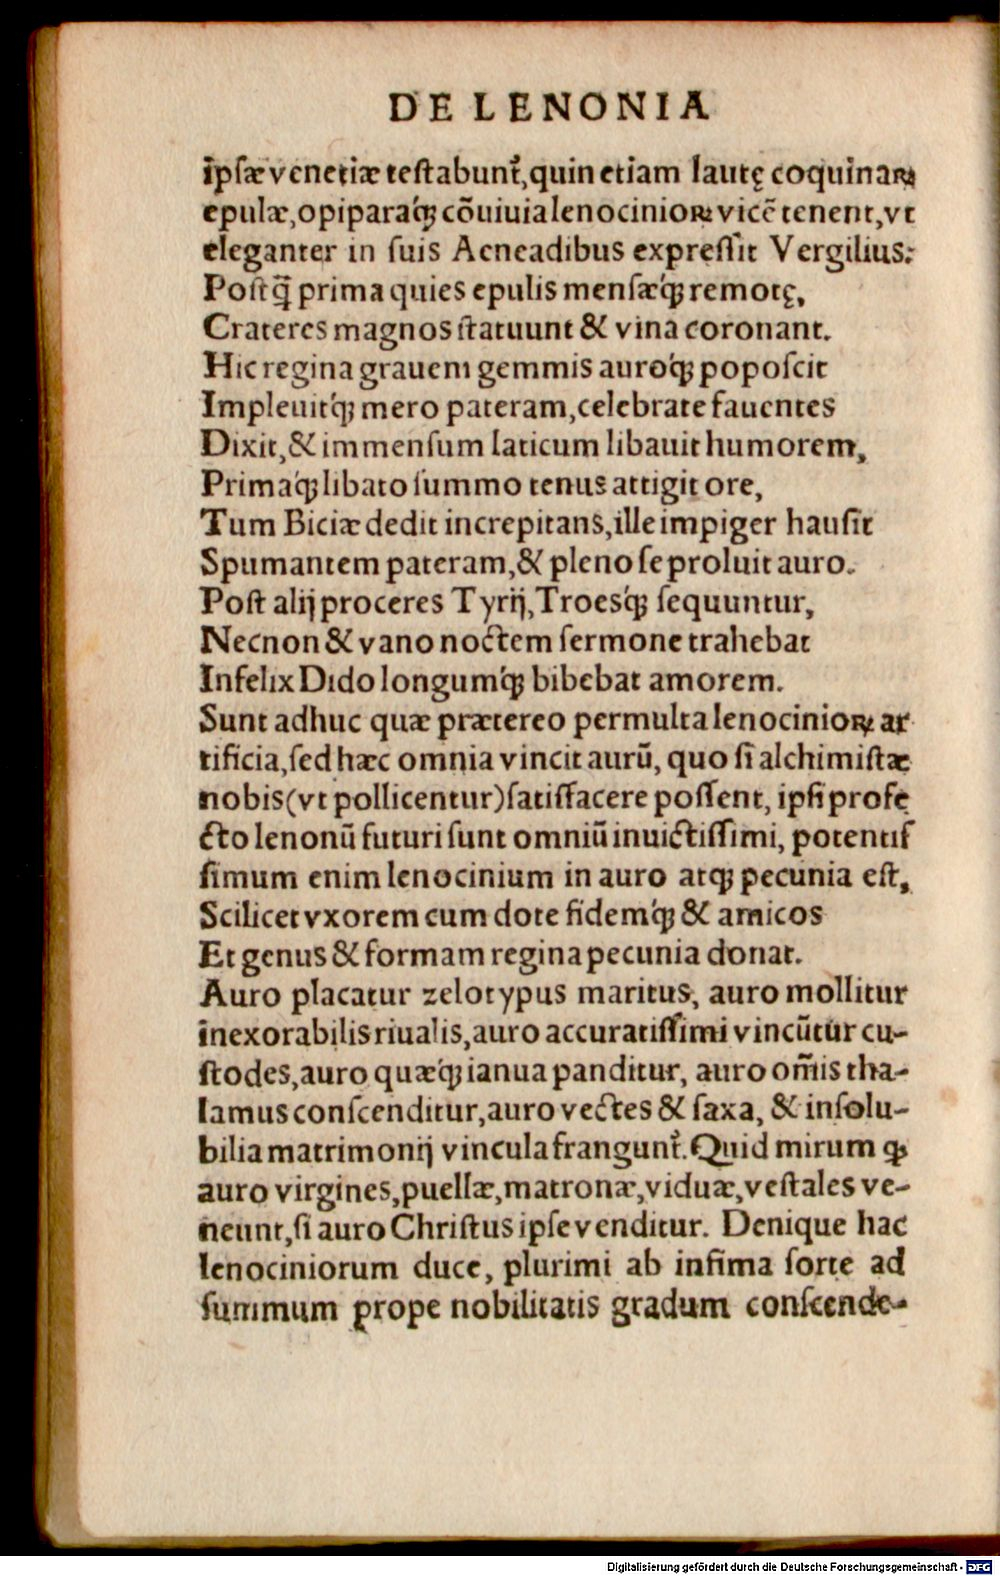 DE LENONIA
ipſæ venetiæ teſtabunt᷑, quin etiam lautę coquinaꝝ
epulæ, opiparaq́ꝫ cõuiuia lenocinioꝝ vicē tenent, vt
eleganter in ſuis Aeneadibus expreſſit Vergilius:
Poſtq̃ prima quies epulis menſæq́ꝫ remotę,
Crateres magnos ſtatuunt & vina coronant.
Hic regina grauem gemmis auroq́ꝫ popoſcit
Impleuitq́ꝫ mero pateram, celebrate fauentes
Dixit, & immenſum laticum libauit humorem,
Primaq́ꝫ libato ſummo tenus attigit ore,
Tum Biciæ dedit increpitans, ille impiger hauſit
Spumantem pateram, & pleno ſe proluit auro.
Poſt alij proceres Tyrij, Troesq́ꝫ ſequuntur,
Necnon & vano noctem ſermone trahebat
Infelix Dido longumq́ꝫ bibebat amorem.
Sunt adhuc quæ prætereo permulta lenocinioꝝ ar
tificia, ſed hæc omnia vincit aurũ, quo ſi alchimiſtæ
nobis (vt pollicentur) ſatiſfacere poſſent, ipſi profe
cto lenonũ futuri ſunt omniũ inuictiſſimi, potentiſ
ſimum enim lenocinium in auro atqꝫ pecunia eſt,
Scilicet vxorem cum dote fidemq́ꝫ & amicos
Et genus & formam regina pecunia donat.
Auro placatur zelotypus maritus, auro mollitur
inexorabilis riualis, auro accuratiſſimi vincũtur cu-
ſtodes, auro quæq́ꝫ ianua panditur, auro om̃is tha-
lamus conſcenditur, auro vectes & ſaxa, & inſolu-
bilia matrimonij vincula frangunt᷑. Quid mirum ꝙ
auro virgines, puellæ, matronæ, viduæ, veſtales ve-
neunt, ſi auro Chriſtus ipſe venditur. Denique hac
lenociniorum duce, plurimi ab infima ſorte ad
ſummum prope nobilitatis gradum conſcende-
Digitalisierung gefördert durch die Deutsche Forschungsgemeinschaft - DFG